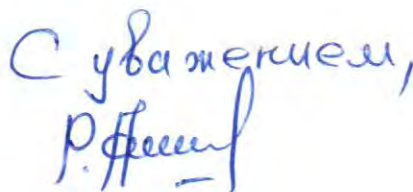 С уважением,
Р.